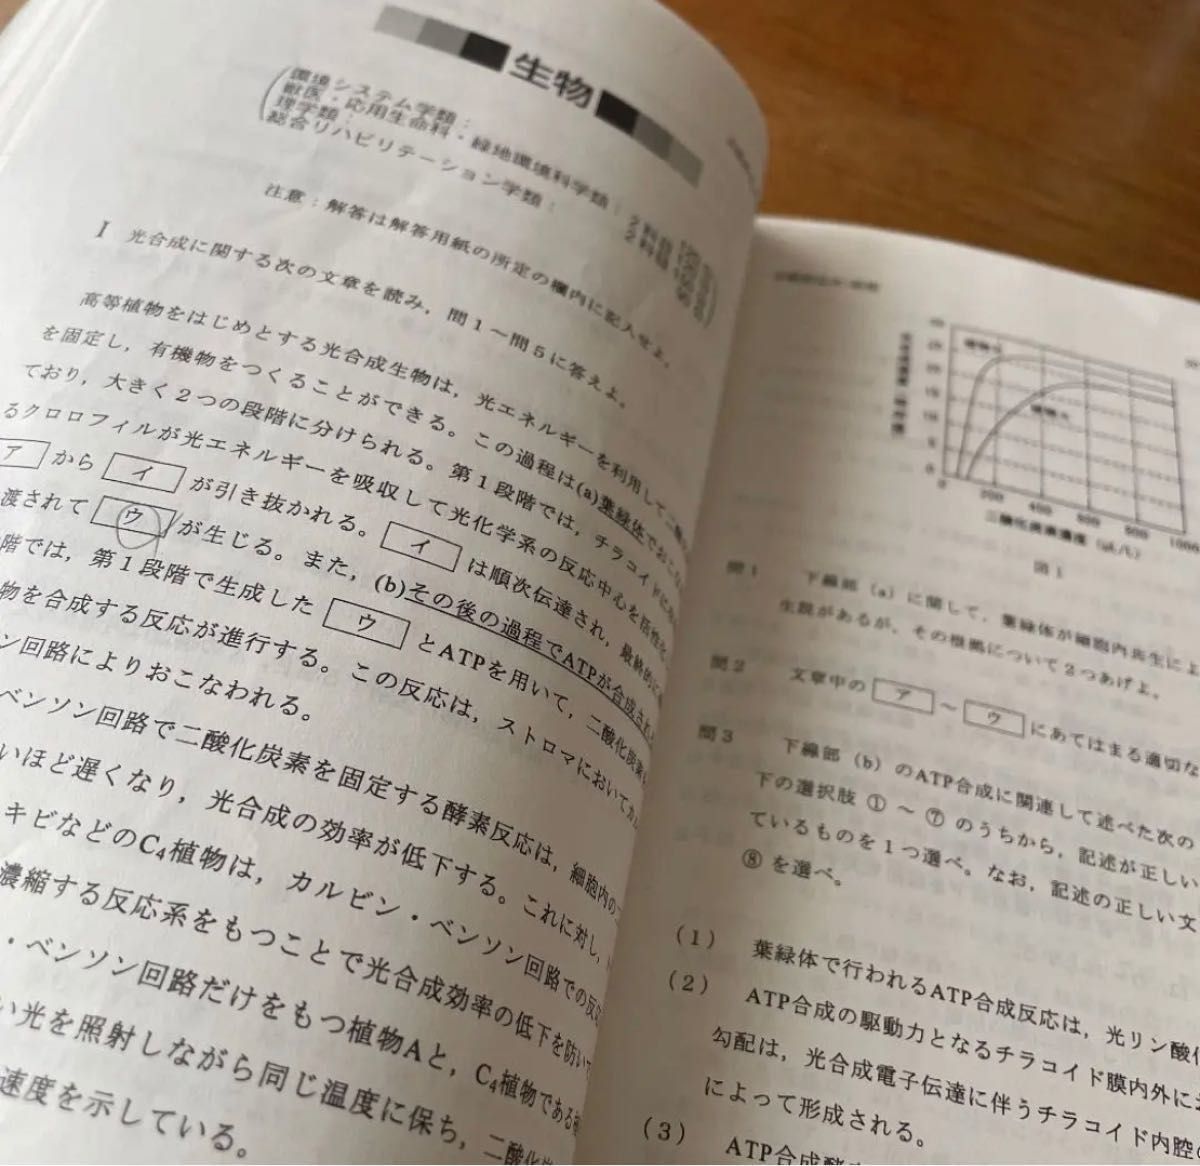 生物
環境システム学類：
獣医・応用生命科・緑地環境科学類：2科目
理学類：2科目
総合リハビリテーション学類：
注意：解答は解答用紙の所定の欄内に記入せよ。
I 光合成に関する次の文章を読み，問1～問5に答えよ。
高等植物をはじめとする光合成生物は，光エネルギーを利用して二酸
を固定し，有機物をつくることができる。この過程は(a)葉緑体でおこな
ており，大きく2つの段階に分けられる。第1段階では，チラコイドにあ
るクロロフィルが光エネルギーを吸収して光化学系の反応中心を活性化
ア から イ が引き抜かれる。 イ は順次伝達され，最終的に
渡されて ウ が生じる。また，(b)その後の過程でATPが合成され
階では，第1段階で生成した ウ とATPを用いて，二酸化炭素
物を合成する反応が進行する。この反応は，ストロマにおいてカ
ン回路によりおこなわれる。
ベンソン回路で二酸化炭素を固定する酵素反応は，細胞内の
いほど遅くなり，光合成の効率が低下する。これに対し，
キビなどのC4植物は，カルビン・ベンソン回路での反応
濃縮する反応系をもつことで光合成効率の低下を防いで
・ベンソン回路だけをもつ植物Aと，C4植物である植
い光を照射しながら同じ温度に保ち，二酸化炭
速度を示している。
0
200
400
600
800
1000
二酸化炭素濃度
図1
問1 下線部(a)に関して，葉緑体が細胞内共生によ
生説があるが，その根拠について2つあげよ。
問2 文章中の ア ～ ウ にあてはまる適切な
問3 下線部(b)のATP合成に関連して述べた次の
下の選択肢①～⑦のうちから，記述が正しい
ているものを1つ選べ。なお，記述の正しい文
⑧を選べ。
(1) 葉緑体で行われるATP合成反応は，光リン酸化
(2) ATP合成の駆動力となるチラコイド膜内外に
勾配は，光合成電子伝達に伴うチラコイド内腔
によって形成される。
(3) ATP合成酵